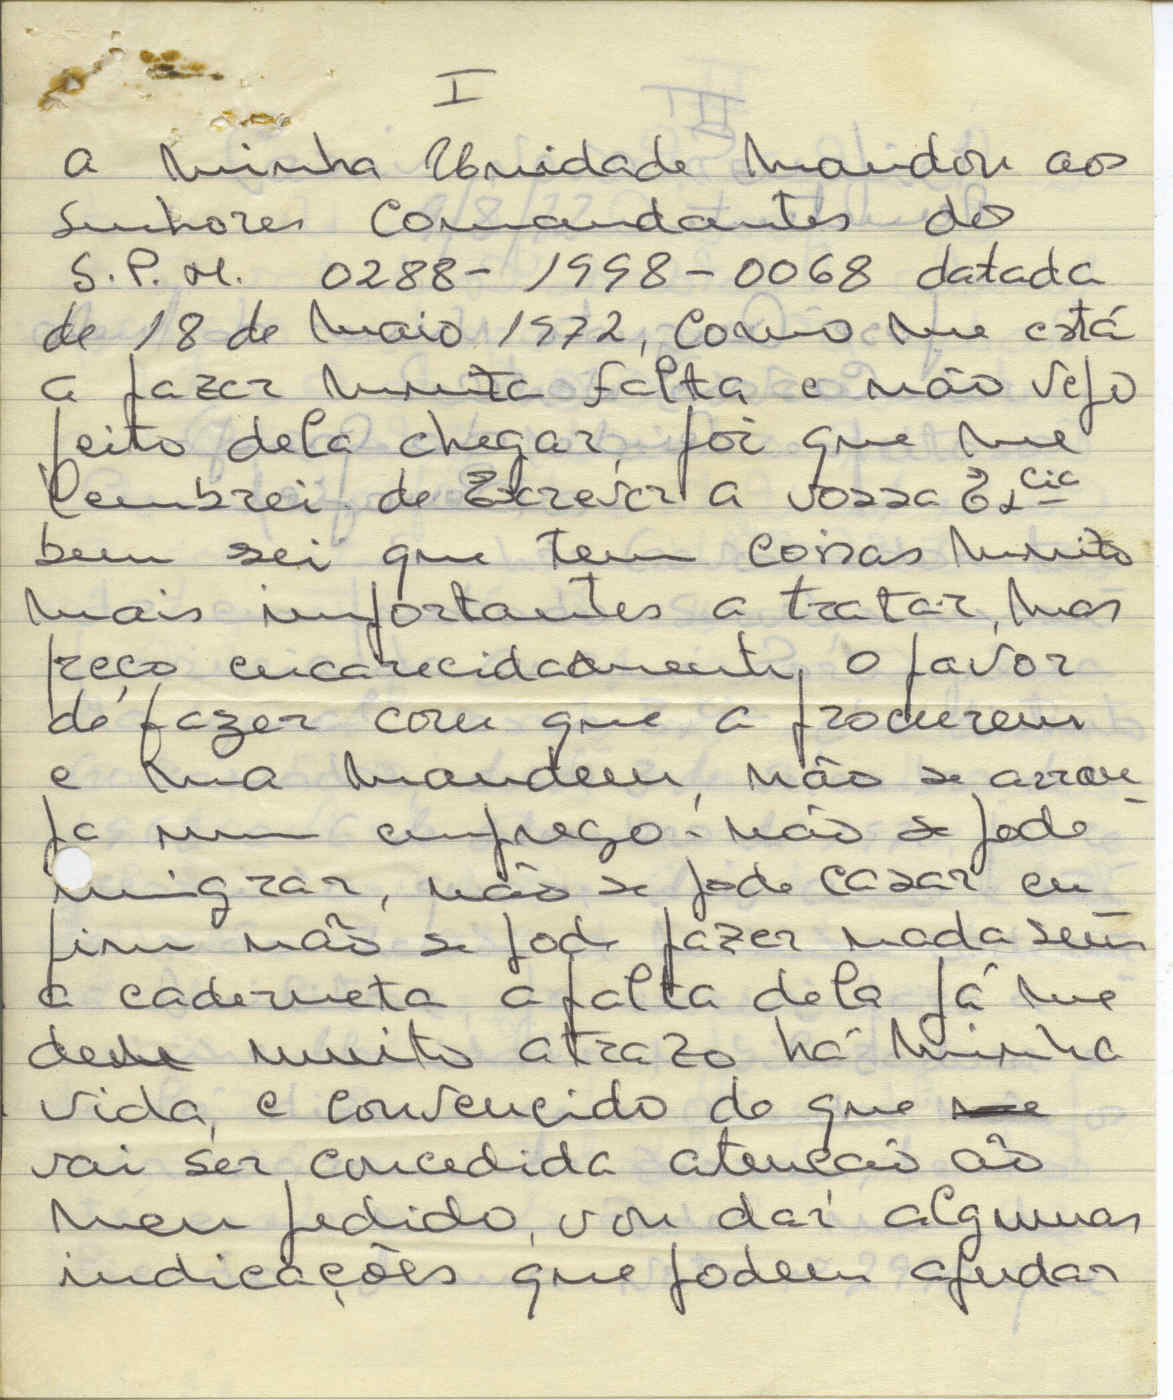 I
a minha Unidade mandou aos
Senhores Comandantes do
S.P.M. 0288-1998-0068 datada
de 18 de Maio 1972, como me está
a fazer muita falta e não vejo
jeito dela chegar, foi que me
Lembrei de Escrever a vossa Ex cia
bem sei que tem coisas muito
mais importantes a tratar, mas
peço encarecidamente, o favor
de fazer com que a procurem
e ma mandem, não se arran-
ja um emprego: não se pode
migrar, não se pode casar en
fim não se pode fazer nada sem
a caderneta a falta dela já me
deu muito atrazo há minha
vida, e convencido de que
vai ser concedida atencão ao
meu pedido, vou dar algumas
indicações que podem ajudar